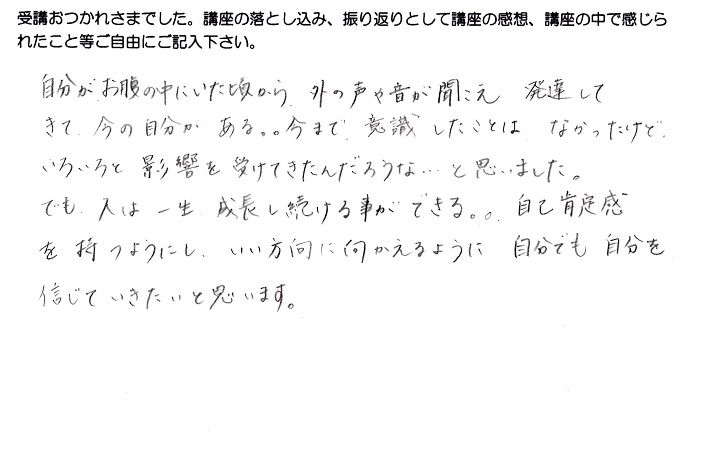 受講おつかれさまでした。講座の落とし込み、振り返りとして講座の感想、講座の中で感じら
れたこと等ご自由にご記入下さい。
自分がお腹の中にいた頃から、外の声や音が聞こえ 発達して
きて、今の自分が ある。。今まで、意識したことは なかったけど、
いろいろと 影響を 受けてきたんだろうな… と思いました。
でも、人は 一生、成長し続ける事ができる。。 自己肯定感
を 持つようにし、いい方向に向かえるように 自分でも 自分を
信じていきたいと思います。